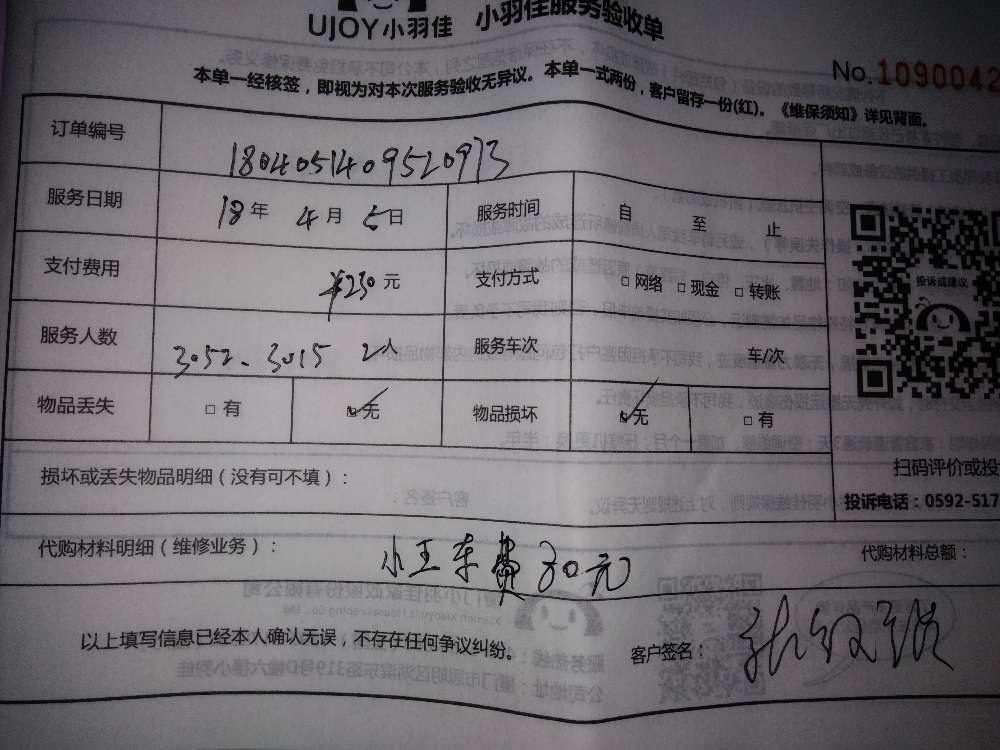 UJOY小羽佳 小羽佳服务验收单
No.1090042
本单一经核签，即视为对本次服务验收无异议。本单一式两份，客户留存一份(红)。《维保须知》详见背面。
订单编号 1804051409520973
服务日期 18年 4月 5日 服务时间 自 至 止
支付费用 ¥230元 支付方式 □网络 □现金 □转账
投诉或建议
服务人数 3052、3015 2人 服务车次 车/次
物品丢失 □有 ☑无 物品损坏 ☑无 □有
扫码评价或投
损坏或丢失物品明细（没有可不填）：
投诉电话：0592-517
代购材料明细（维修业务）： 小王车费30元 代购材料总额：
以上填写信息已经本人确认无误，不存在任何争议纠纷。 客户签名：